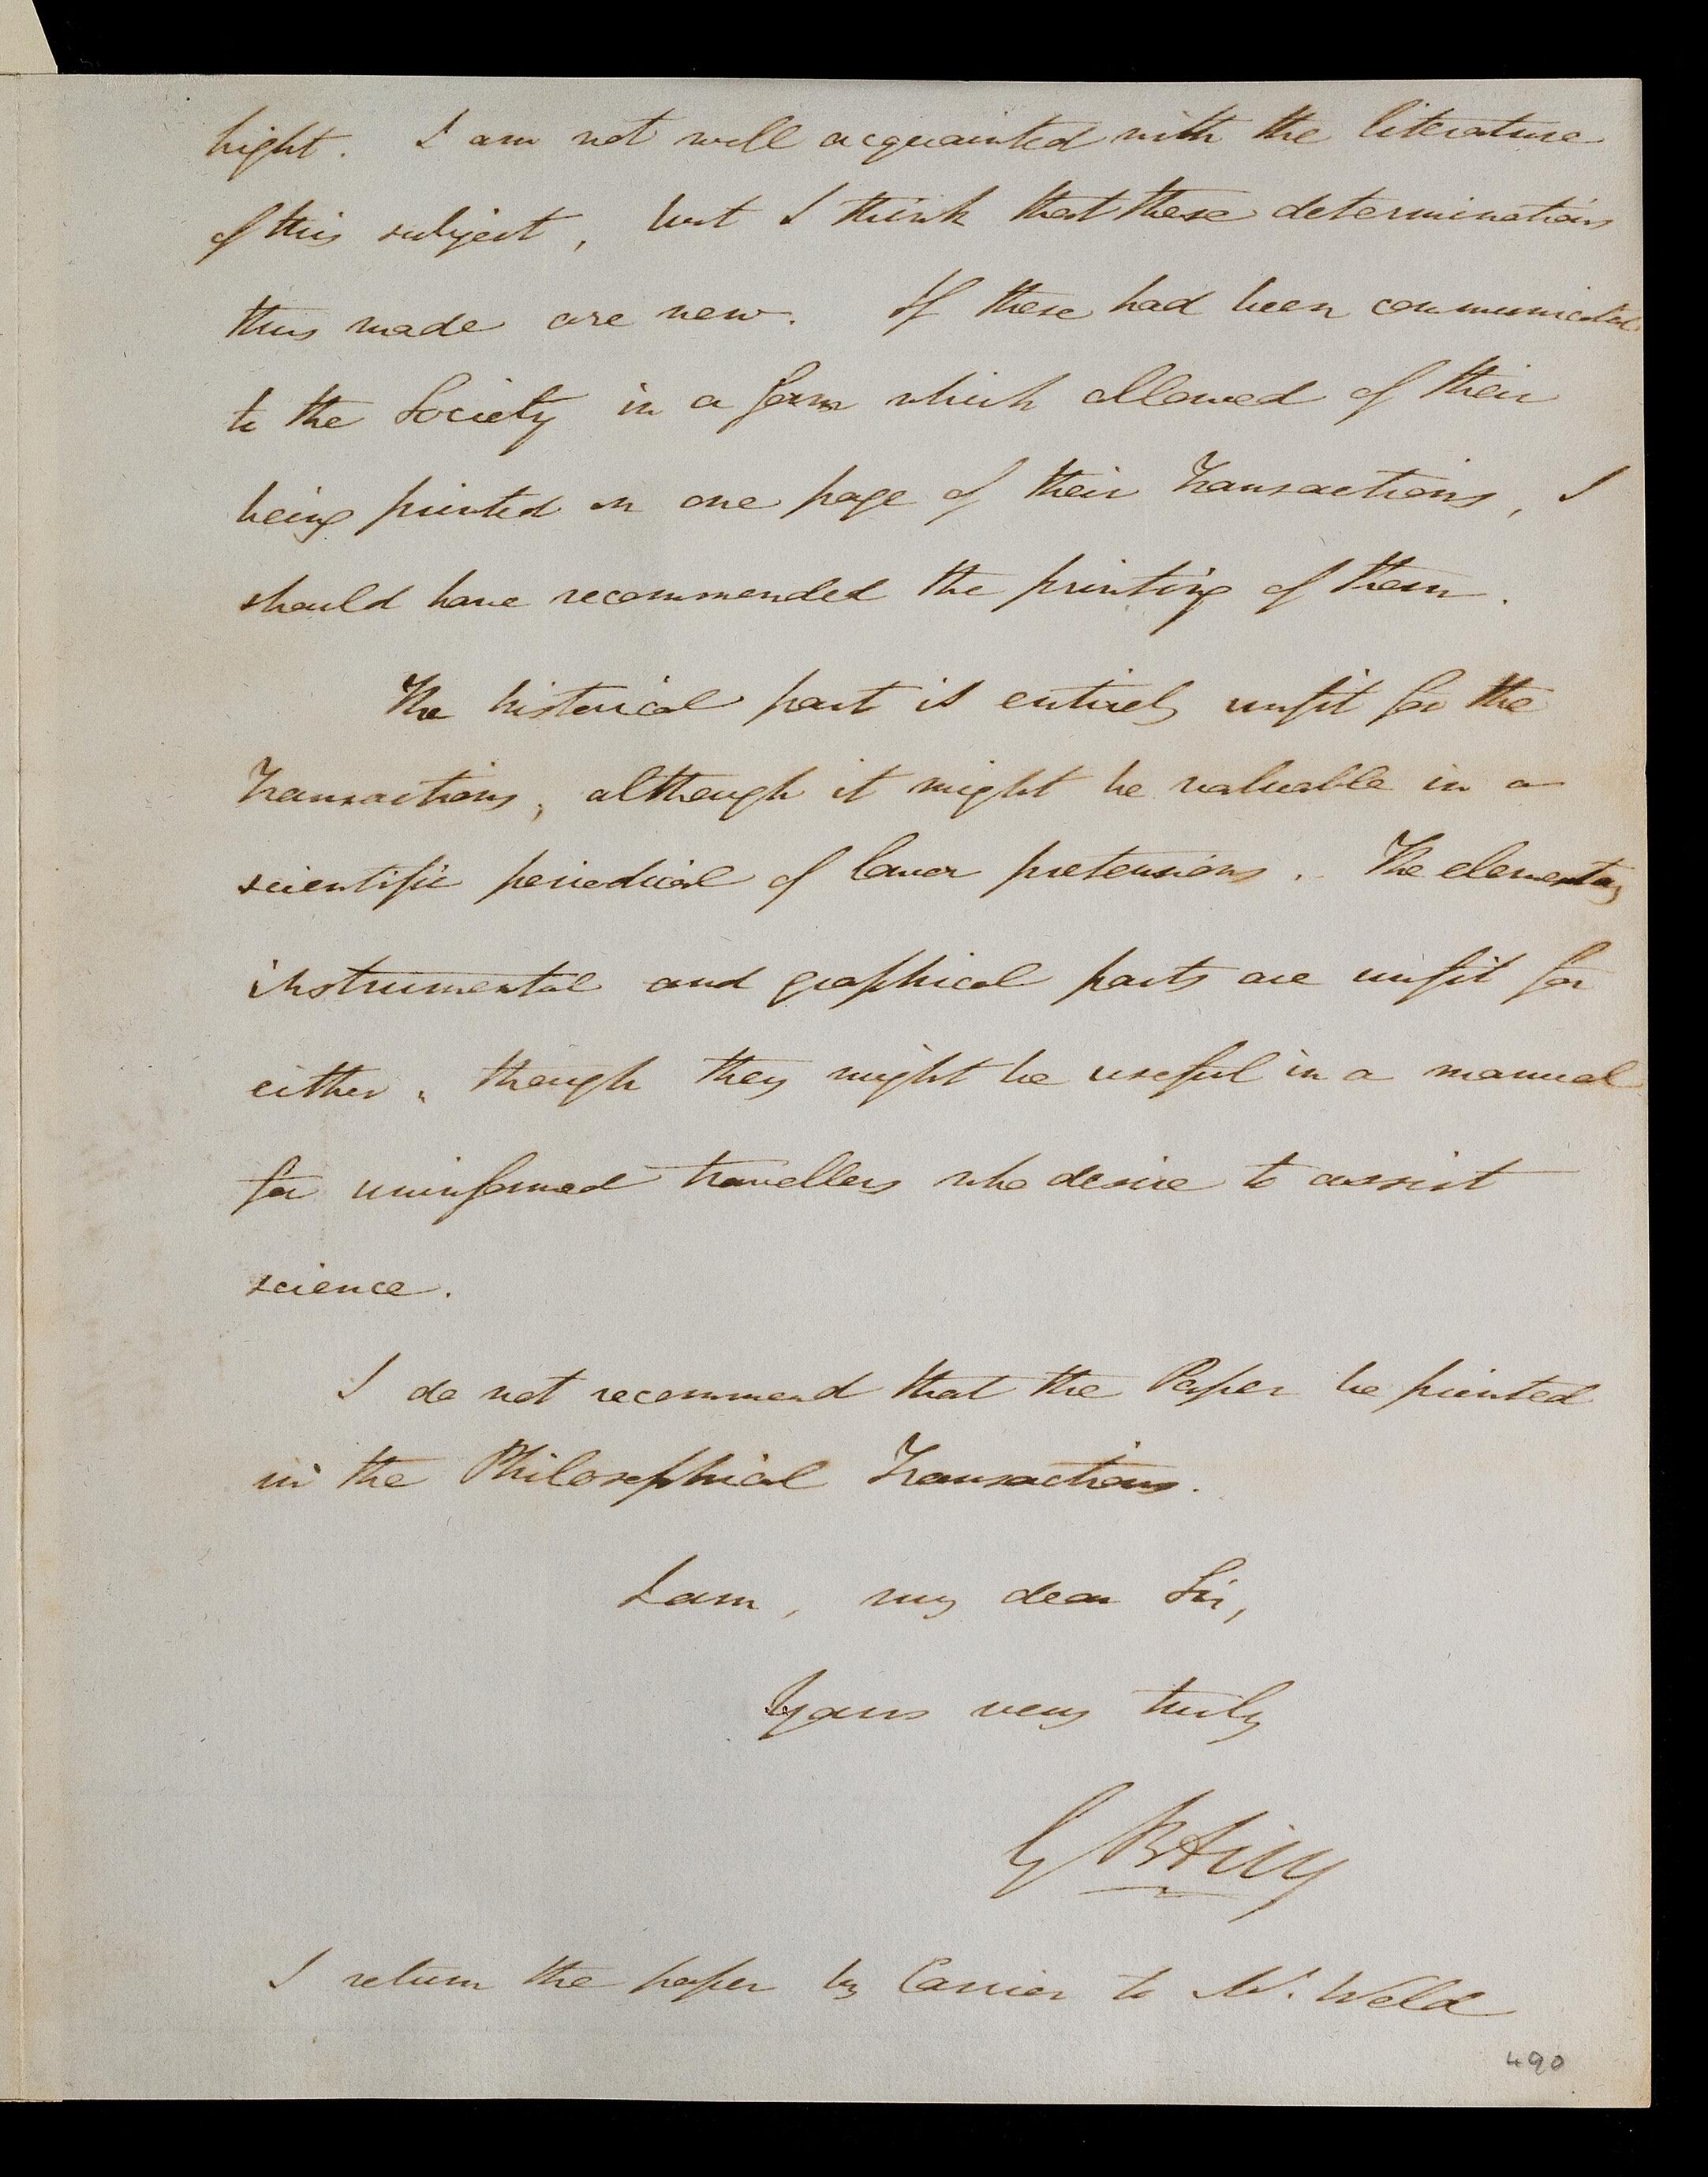 hight. I am not well acquainted with the literature
of this subject, but I think that these determinations
thus made are new. If these had been communicated
to the Society in a form which allowed of their
being printed in one page of their Transactions, I
should have recommended the printing of them.
The historical part is entirely unfit for the
Transactions, although it might be valuable in a
scientific periodical of lower pretensions. The elementary
instrumental and graphical parts are unfit for
either, though they might be useful in a manual
for uninformed travellers who desire to assist
science.
I do not recommend that the Paper be printed
in the Philosophical Transactions.
I am, my dear Sir,
Yours very truly
G B Airy
I return the paper by Carrier to Mr. Weld
490